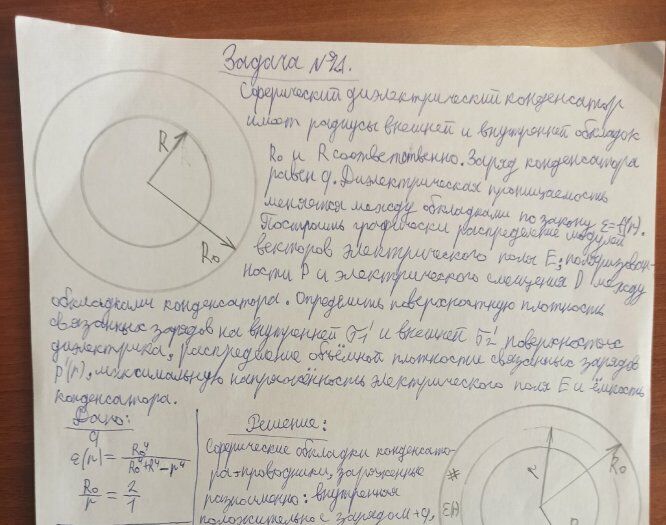 Задача №21.
Сферический диэлектрический конденсатор
имеет радиусы внешней и внутренней обкладок
R
R₀ и R соответственно. Заряд конденсатора
равен q. Диэлектрическая проницаемость
меняется между обкладками по закону ε=f(r).
Построить графически распределение модулей
R₀
векторов электрического поля E, поляризован-
ности P и электрического смещения D между
обкладками конденсатора. Определить поверхностную плотность
связанных зарядов на внутренней σ₁' и внешней σ₂' поверхностях
диэлектрика, распределение объёмной плотности связанных зарядов
ρ'(r), максимальную напряжённость электрического поля E и ёмкость
конденсатора.
Дано:
q
ε(r) = R₀⁴/(R₀⁴+R⁴-r⁴)
R₀/r = 2/1
Решение:
Сферические обкладки конденсато-
ра-проводники, заряженные
разноимённо: внутренняя
положительно с зарядом +q,
r
R₀